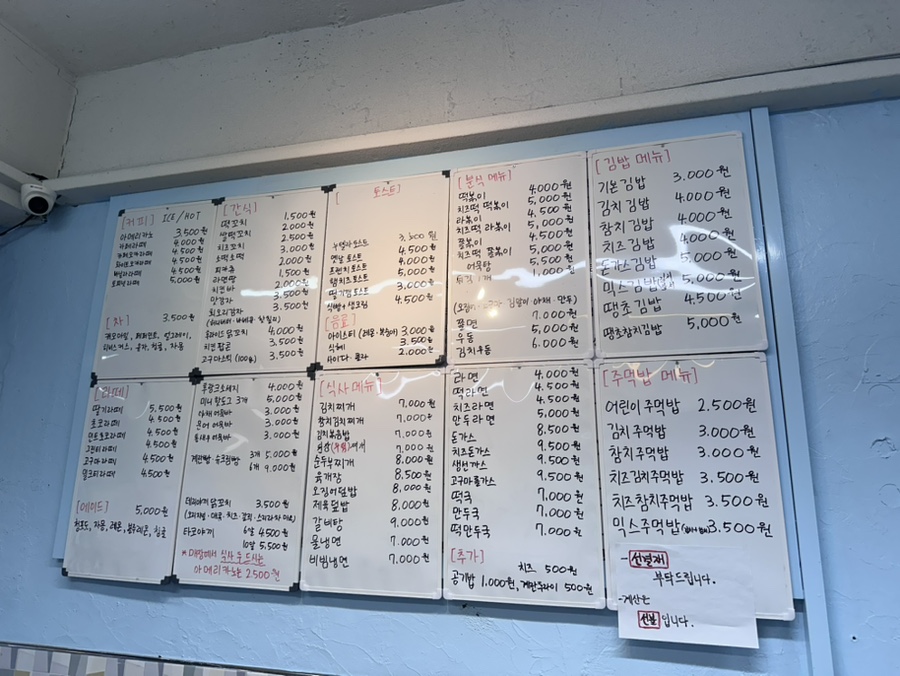 [커피] ICE/HOT
아메리카노 3,500원
카페라떼 4,000원
카페모카라떼 4,500원
4,500원
바닐라라떼 4,500원
5,000원
[차] 3,500원
캐모마일, 페퍼민트, 얼그레이,
유자, 자몽
[간식]
떡꼬치 1,500원
2,000원
치즈꼬치 2,500원
소떡소떡 3,000원
피카츄 2,000원
라면땅 1,500원
치킨바 2,000원
맛감자 3,500원
회오리감자 3,500원
닭꼬치 4,000원
치킨팝콘 3,500원
고구마스틱 (100g) 3,500원
[토스트]
누텔라토스트
옛날토스트 4,500원
프렌치토스트 4,000원
햄치즈토스트 5,000원
딸기잼토스트 3,000원
식빵+생크림 4,500원
[음료]
아이스티 (레몬·복숭아) 3,000원
식혜 3,500원
사이다·콜라 2,000원
[분식 메뉴]
떡볶이 4,000원
치즈떡 떡볶이 5,000원
라볶이 5,000원
치즈떡 라볶이 4,500원
쫄볶이 4,500원
치즈떡 쫄볶이 5,500원
어묵탕 5,500원
튀김 1개 1,000원
김말이 야채·만두)
쫄면 7,000원
우동 5,000원
김치우동 6,000원
[김밥 메뉴]
기본김밥 3,000원
김치김밥 4,000원
참치김밥 4,000원
치즈김밥 4,000원
돈가스김밥 5,000원
믹스김밥 5,000원
땡초김밥 4,500원
땡초참치김밥 5,000원
[라떼]
딸기라떼 5,500원
초코라떼 4,500원
민트초코라떼 4,500원
그린티라떼 4,500원
고구마라떼 4,500원
밀크티라떼 4,500원
[에이드] 5,000원
청포도, 자몽, 레몬, 블루레몬, 청귤
후랑크소세지 4,000원
미니핫도그 3개 5,000원
야채어묵바 3,000원
문어어묵바 3,000원
통새우어묵바 3,000원
계란빵·슈크림빵 3개 5,000원
6개 9,000원
데리야끼 닭꼬치 3,500원
타코야끼 6알 4,500원
10알 5,500원
※ 매장에서 식사 후 드시는
아메리카노는 2500원
[식사 메뉴]
김치찌개 7,000원
참치김치찌개 7,000원
김치볶음밥 7,000원
7,000원
순두부찌개 8,000원
육개장 8,500원
오징어덮밥 8,000원
제육덮밥 8,000원
갈비탕 9,000원
물냉면 7,000원
비빔냉면 7,000원
라면 4,000원
떡라면 4,500원
치즈라면 4,500원
만두라면 5,000원
돈가스 8,500원
치즈돈가스 9,500원
생선가스 9,500원
고구마롤가스 9,500원
떡국 7,000원
만두국 7,000원
떡만두국 7,000원
[추가]
치즈 500원
공기밥 1,000원, 계란후라이 500원
[주먹밥 메뉴]
어린이주먹밥 2,500원
김치주먹밥 3,000원
참치주먹밥 3,000원
치즈김치주먹밥 3,500원
치즈참치주먹밥 3,500원
믹스주먹밥 3,500원
- 선결제
부탁드립니다.
-계산은
선불입니다.